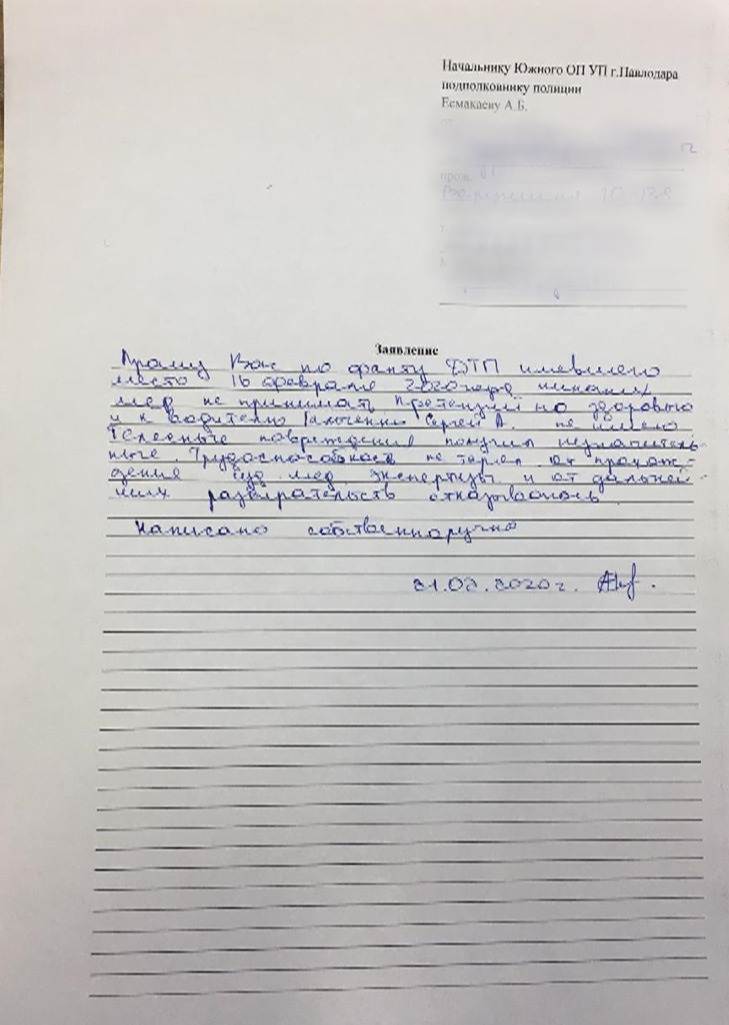 Начальнику Южного ОП УП г.Павлодара
подполковнику полиции
Есмакаеву А.Б.
от
прож.
10-138
Заявление
Прошу Вас по факту ДТП имевшего
место 16 февраля 2020 года никаких
мер не принимать Претензий по здоровью
и к водителю Сергей А. не имею
Телесные повреждения получил незначитель-
ные. Трудоспособность не терял от прохож-
дение суд мед экспертизы и от дальней-
ших разбирательств отказываюсь
Написано собственноручно
21.02.2020г.